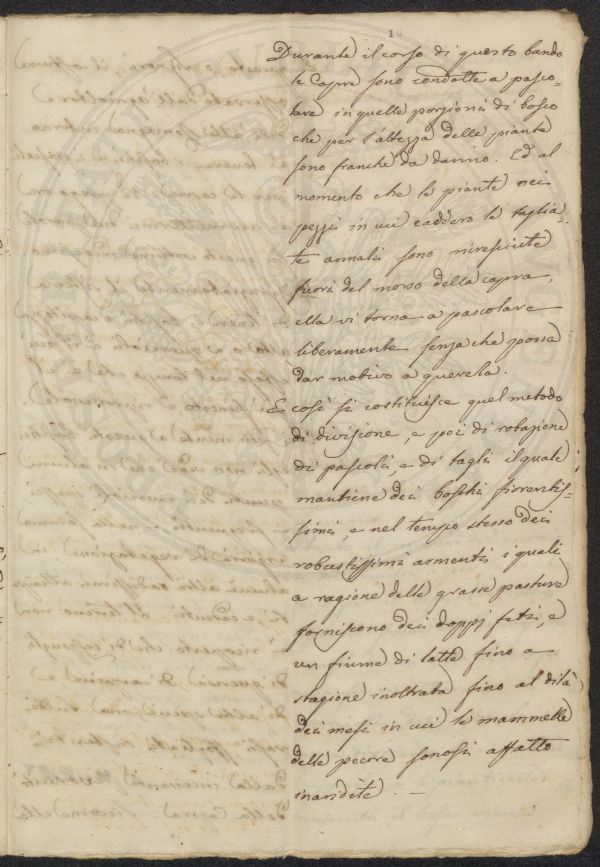 10
Durante il corso di questo bando
le Capre sono condotte a pasco-
lare in quelle porzioni di bosco
che per l'altezza delle piante
sono franche da danno. Ed al
momento che le piante nei
pezzi in cui caddero le taglia-
te annali sono rivesciute
fuori del morso della capra,
ella vi torna a pascolare
liberamente senza che possa
dar motivo a querela.
E così si costituisce quel metodo
di divisione, e poi di rotazione
di pascoli, e di tagli il quale
mantiene dei boschi fiorentis-
simi, e nel tempo stesso dei
robustissimi armenti i quali
a ragione delle grasse pasture
forniscono dei doppj feti, e
un fiume di latte fino a
stagione inoltrata fino al di là
dei mesi in cui le mammelle
delle pecore sonosi affatto
inaridite. —